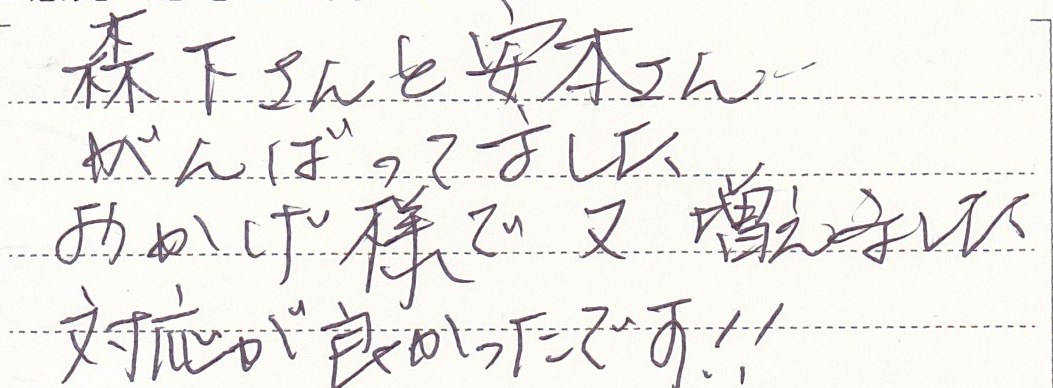 森下さんと安本さん
がんばってました
おかげ様で又 増えました
対応が良かったです!!